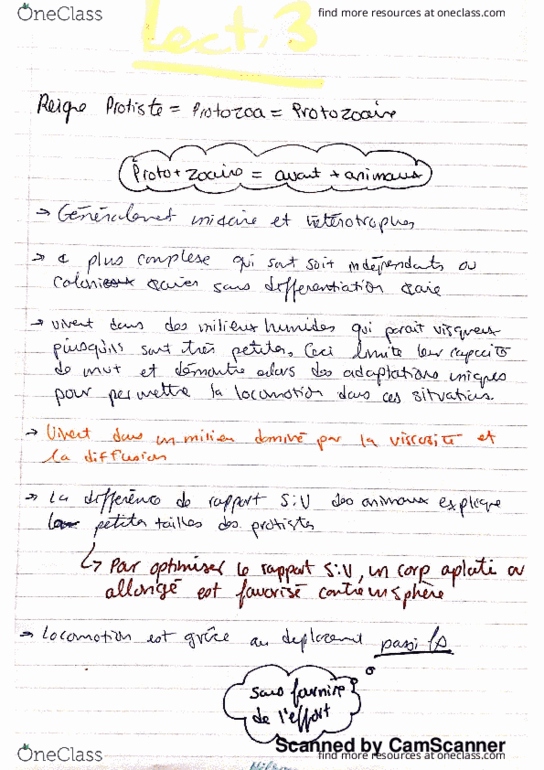 OneClass
find more resources at oneclass.com
Lect. 3
Reigne Protiste = Protozoa = Protozoaire
Proto + zoaire = avant + animaux
→ Généralement et hétérotrophes
→ plus complexe qui sont soit indépendants ou
sans differentiation
→ vivent dans des milieux humides qui parait visqueux
puisqu'ils sont très petites. Ceci limite leur capacité
de mvt et démontre alors des adaptations uniques
pour permettre la locomotion dans ces situations.
→ Vivent dans un milieu dominé par la viscosité et
la diffusion
→ La différence de rapport S:V des animaux explique
petites tailles des protistes
↳ Par optimiser le rapport S:V, un corp aplati ou
allongé est favorisé contre un sphère
→ Locomotion est grâce au deplacement passifs
sans fournire
de l'effort
Scanned by CamScanner
OneClass
find more resources at oneclass.com